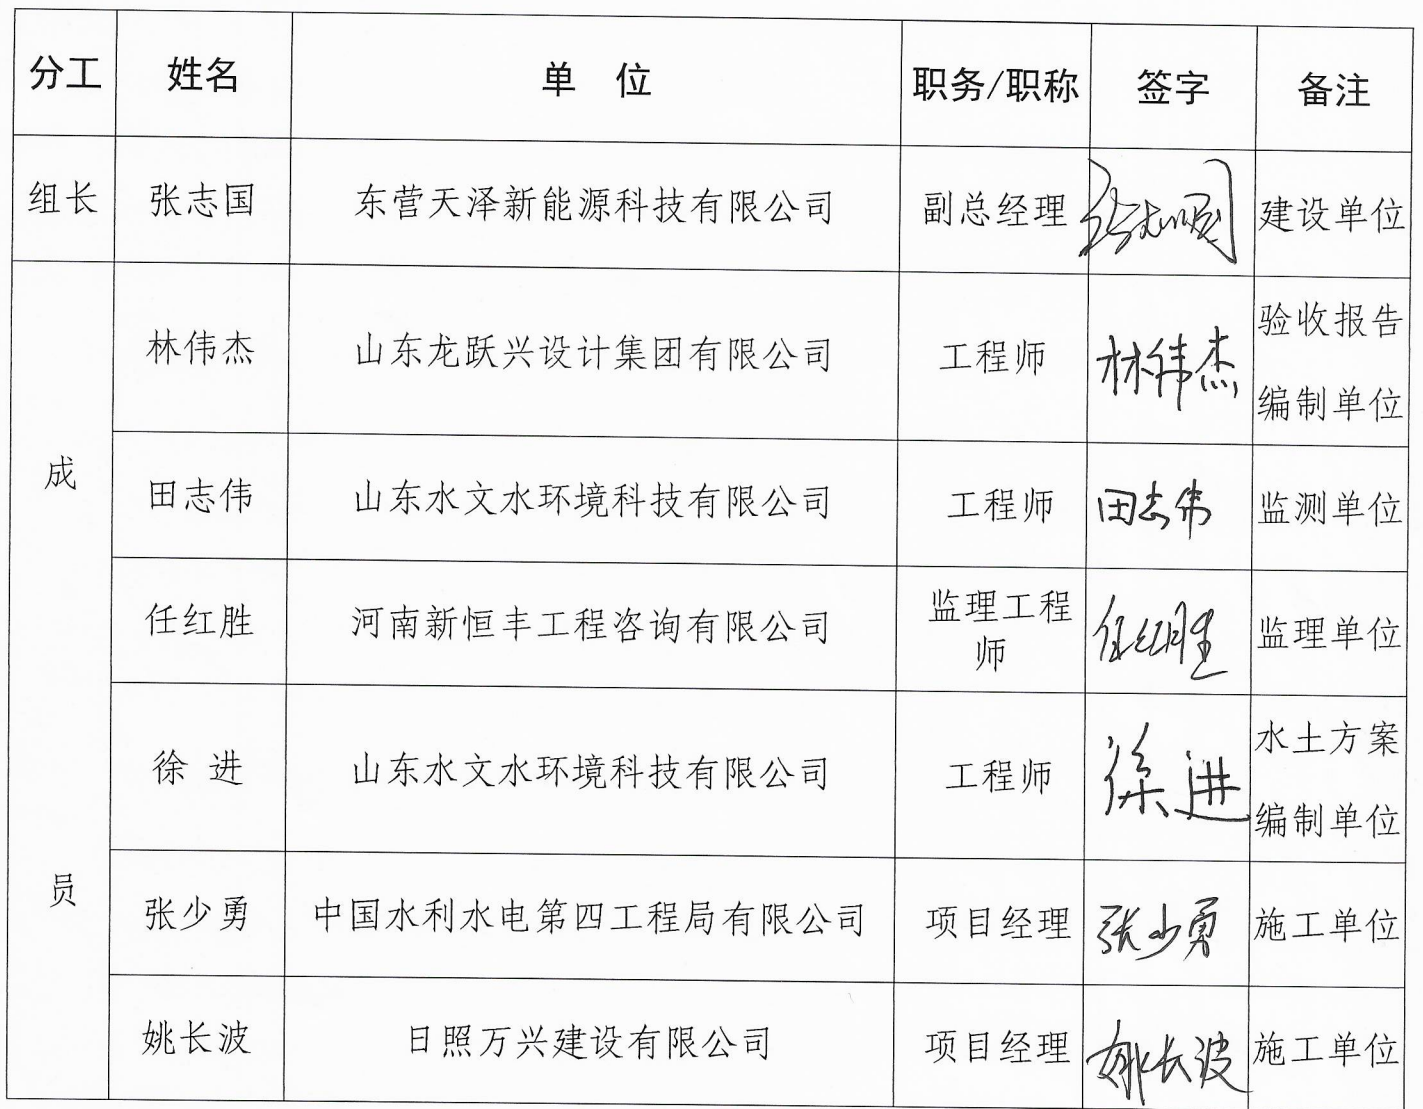 分工 姓名 单 位 职务/职称 签字 备注
组长 张志国 东营天泽新能源科技有限公司 副总经理 张志国 建设单位
成
员
林伟杰 山东龙跃兴设计集团有限公司 工程师 林伟杰 验收报告
编制单位
田志伟 山东水文水环境科技有限公司 工程师 田志伟 监测单位
任红胜 河南新恒丰工程咨询有限公司 监理工程
师 任红胜 监理单位
徐 进 山东水文水环境科技有限公司 工程师 徐进 水土方案
编制单位
张少勇 中国水利水电第四工程局有限公司 项目经理 张少勇 施工单位
姚长波 日照万兴建设有限公司 项目经理 姚长波 施工单位